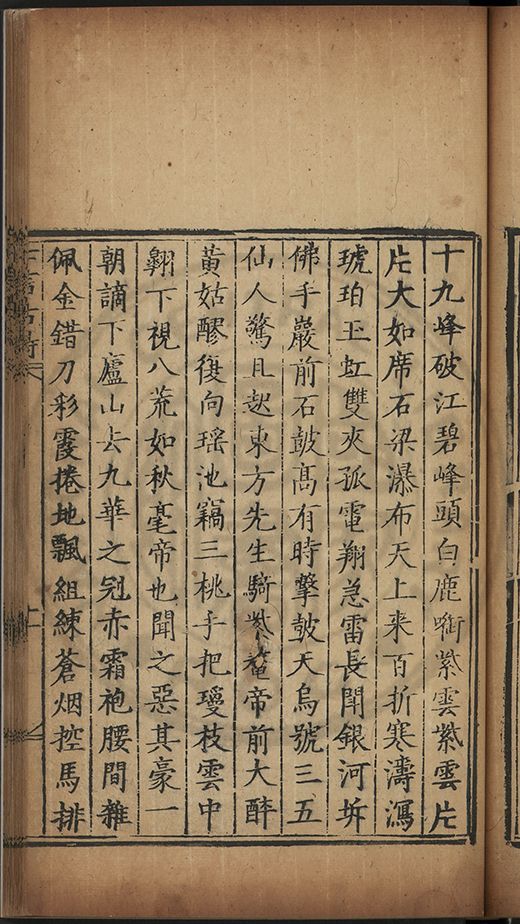 十九峰破江碧峰頭白鹿啣紫雲紫雲片
片大如席石梁瀑布天上来百折寒濤瀉
琥珀玉虹雙夾孤電翔急雷長閗銀河坼
佛手巖前石皷髙有時擊皷天烏號三五
仙人驚且起東方先生騎紫鼇帝前大醉
黃姑醪復向瑶池竊三桃手把瓊枝雲中
翺下視八荒如秋毫帝也聞之惡其豪一
朝謫下廬山去九華之冠赤霜袍腰間雜
佩金錯刀彩霞捲地飄組練蒼烟控馬排